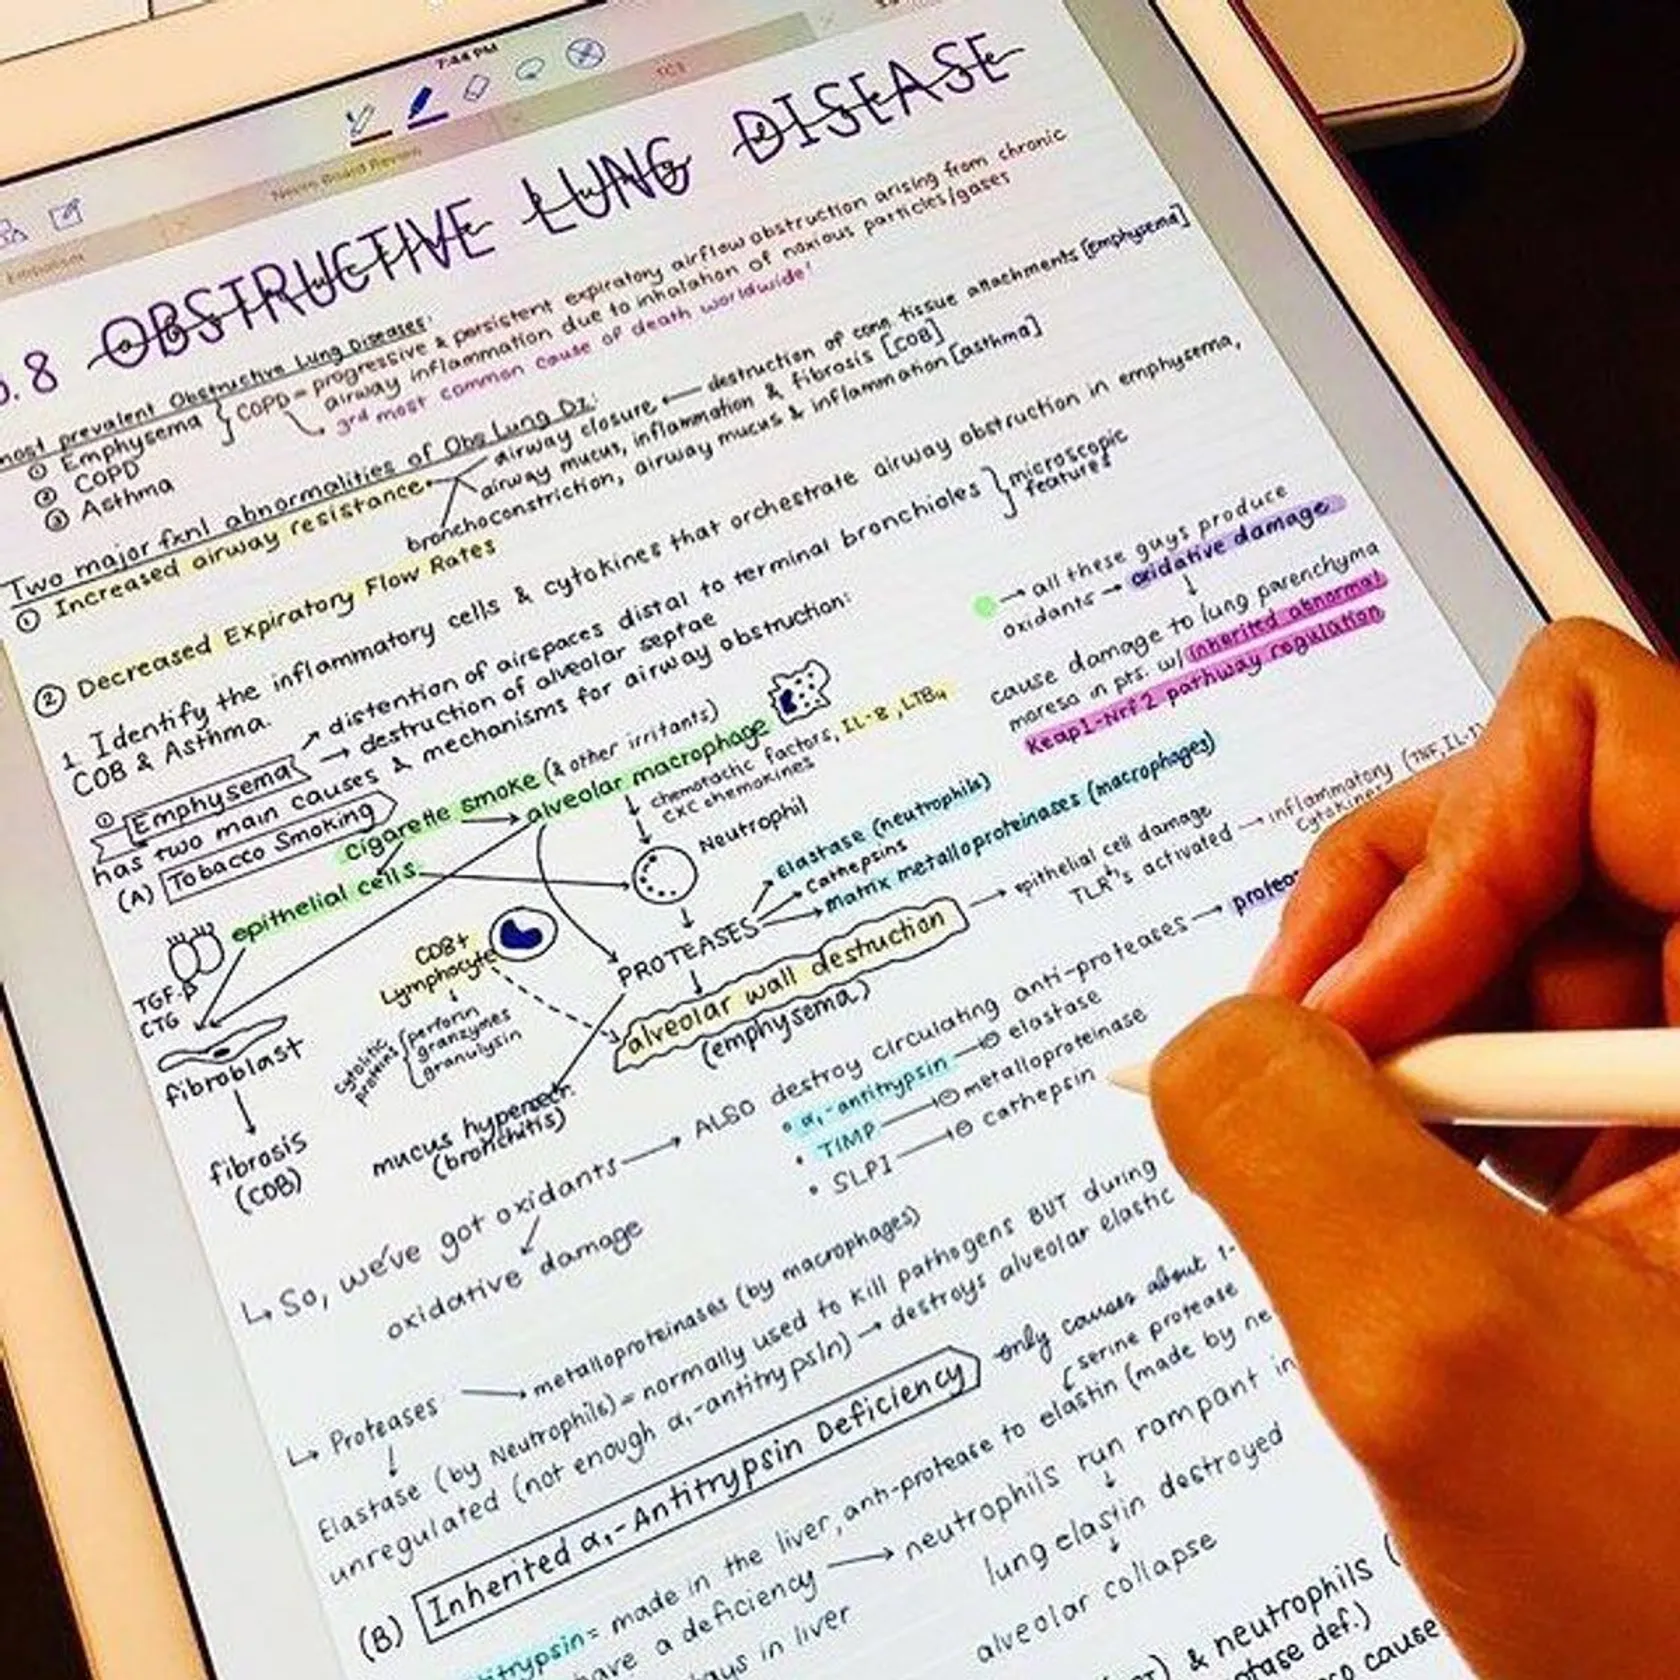 7:44 PM
Neuro Board Review
Embolism
TCB
.8 OBSTRUCTIVE LUNG DISEASE
most prevalent Obstructive Lung Diseases:
① Emphysema
② COPD
③ Asthma
COPD = progressive & persistent expiratory airflow obstruction arising from chronic
airway inflammation due to inhalation of noxious particles/gases
3rd most common cause of death worldwide!
Two major fxnl abnormalities of Obs Lung Dz:
① Increased airway resistance
airway closure ← destruction of conn tissue attachments [emphysema]
airway mucus, inflammation & fibrosis [COB]
bronchoconstriction, airway mucus & inflammation [asthma]
② Decreased Expiratory Flow Rates
1. Identify the inflammatory cells & cytokines that orchestrate airway obstruction in emphysema,
COB & Asthma.
① Emphysema → distention of airspaces distal to terminal bronchioles } microscopic
→ destruction of alveolar septae
features
has two main causes & mechanisms for airway obstruction:
(A) Tobacco Smoking
cigarette smoke (& other irritants)
→ alveolar macrophage
epithelial cells
chemotactic factors, IL-8, LTB4
CXC chemokines
Neutrophil
→ all these guys produce
oxidants → oxidative damage
↓
cause damage to lung parenchyma
moreso in pts. w/ inherited abnormal
Keap1-Nrf2 pathway regulation
TGF-β
CTG
fibroblast
fibrosis
(COB)
CD8+
Lymphocyte
cytolitic
proteins
perforin
granzymes
granulysin
PROTEASES
Elastase (neutrophils)
Cathepsins
Matrix metalloproteinases (macrophages)
alveolar wall destruction
(emphysema)
→ epithelial cell damage
TLR4's activated → inflammatory (TNF, IL-1)
cytokines
mucus hypersech
(bronchitis)
↳ So, we've got oxidants → ALSO destroy circulating anti-proteases →
• α1-antitrypsin —⊖ elastase
• TIMP —⊖ metalloproteinase
• SLPI —⊖ cathepsin
oxidative damage
↳ Proteases → metalloproteinases (by macrophages)
↓
Elastase (by Neutrophils) = normally used to kill pathogens BUT during
unregulated (not enough α1-antitrypsin) → destroys alveolar elastic
(B) Inherited α1-Antitrypsin Deficiency only causes about 1-
serine protease
= made in the liver, anti-protease to elastin (made by ne
have a deficiency → neutrophils run rampant in
↓
lung elastin destroyed
↓
alveolar collapse
in liver
& neutrophils (
def.)
cause